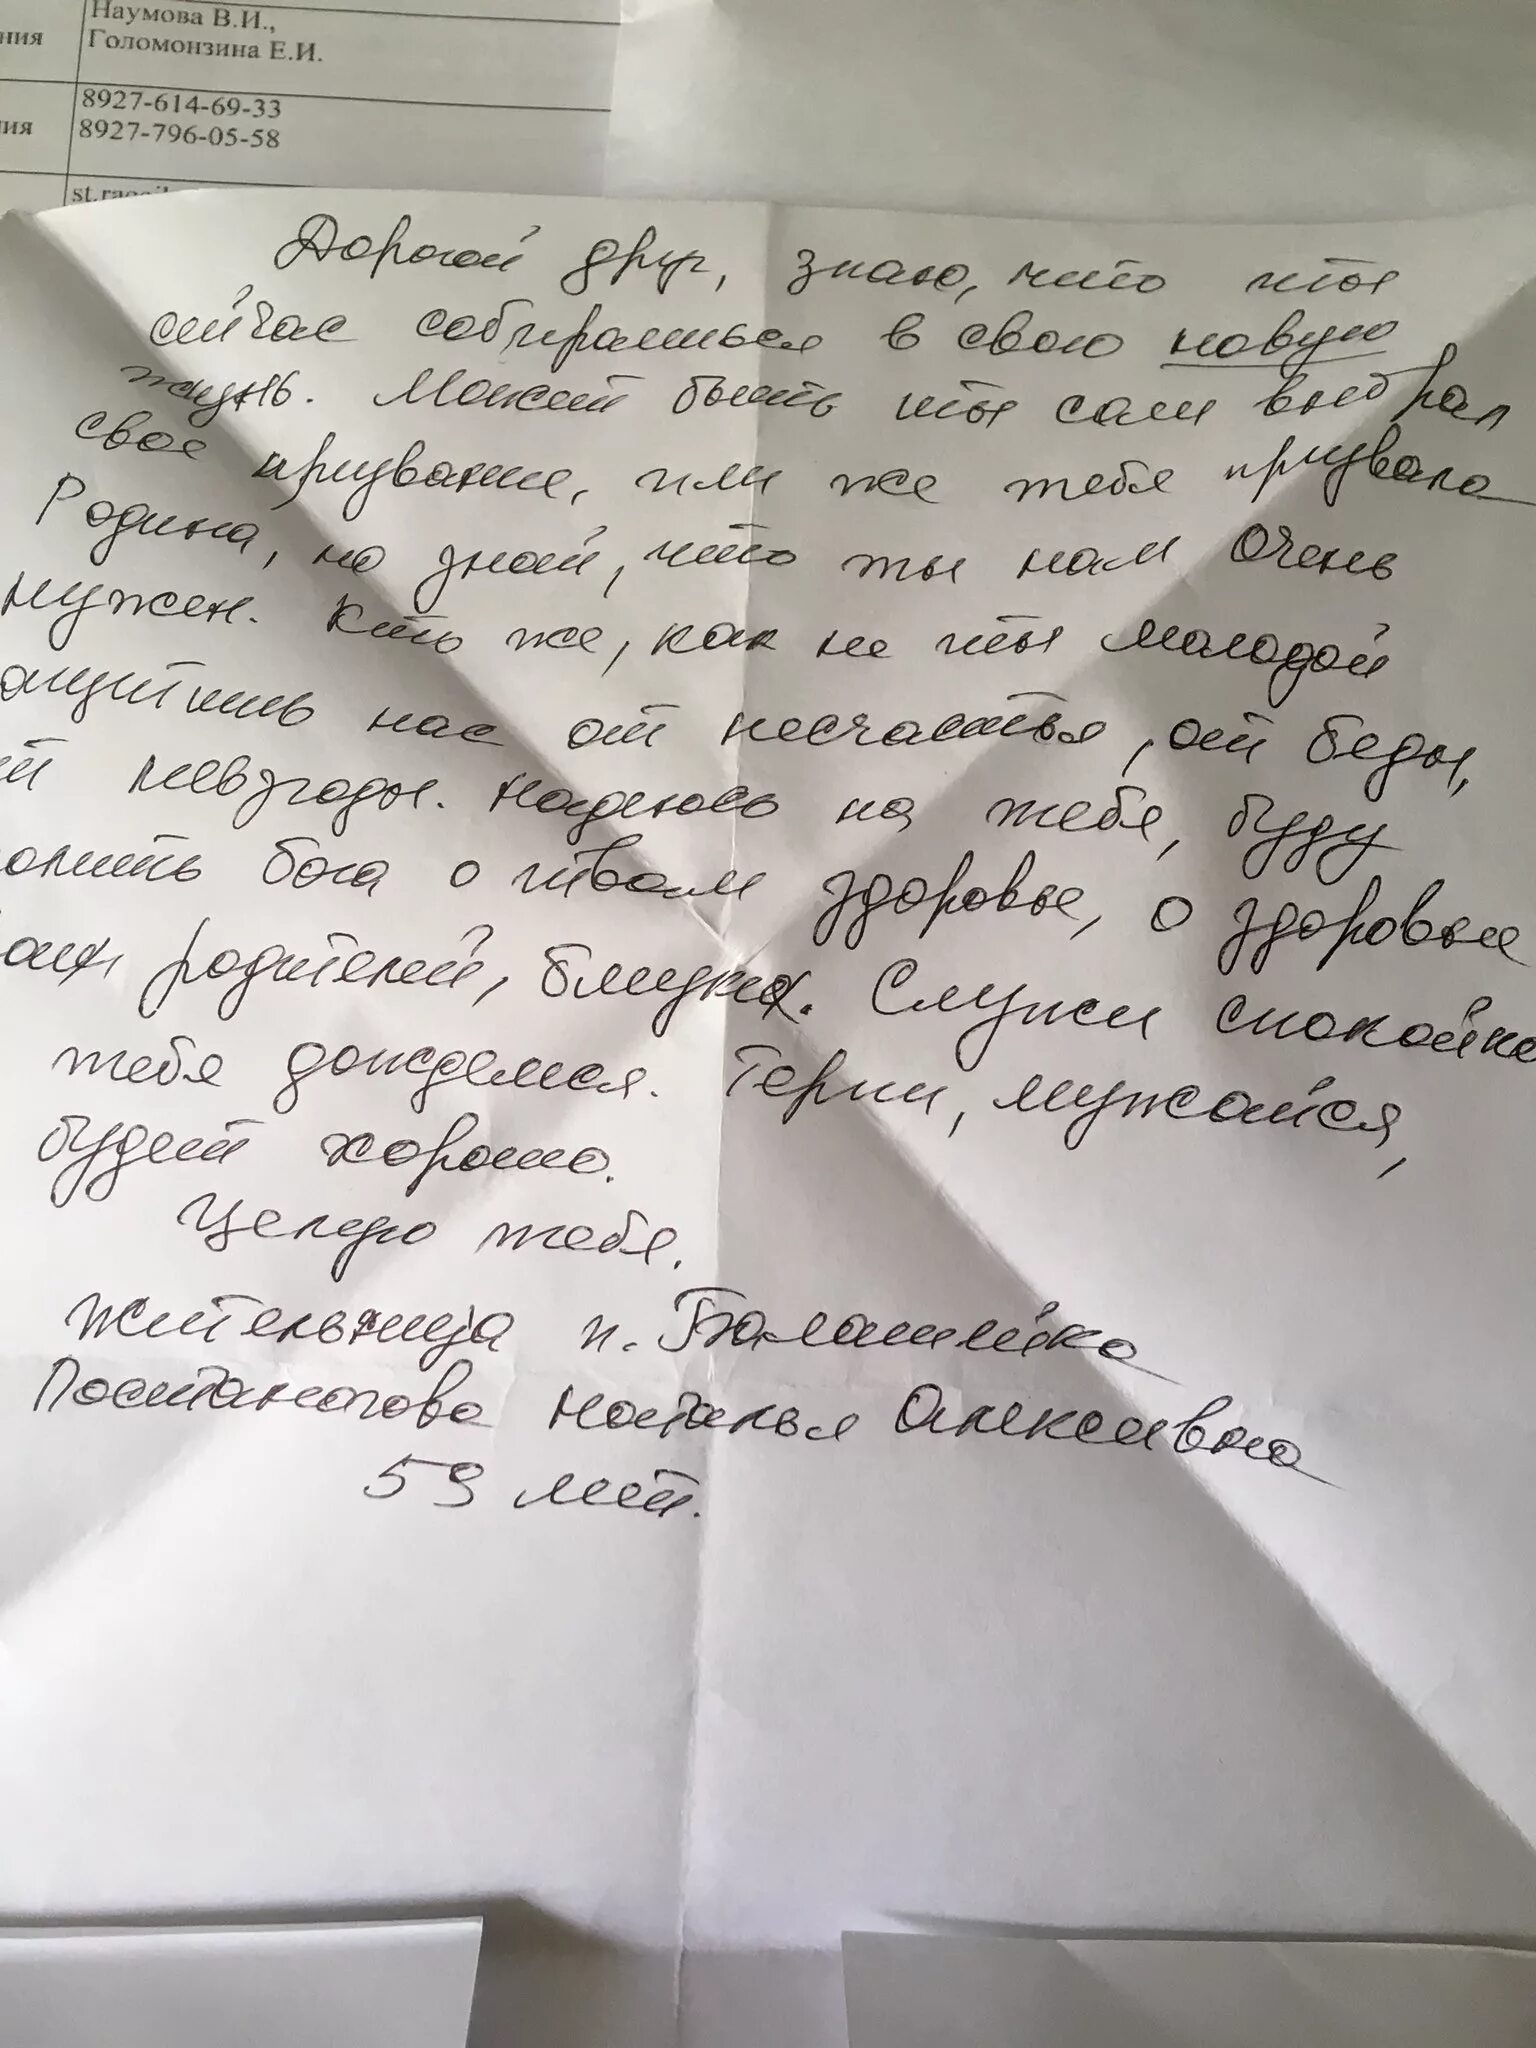 ния
Наумова В.И.,
Голомонзина Е.И.
ия
8927-614-69-33
8927-796-05-58
Дорогой друг, знаю, что ты
сейчас собираешься в свою новую
жизнь. Может быть ты сам выбрал
свое призвание, или же тебя призвала
Родина, но знай, что ты нам очень
нужен. Кто же, как не ты молодой
ащитить нас от несчастья, от беды,
т невзгоды. Надеюсь на тебя, буду
олить бога о твоем здоровье, о здоровье
оих родителей, близких. Служи спокойно
тебя дождемся. Терпи, мужайся,
будет хорошо.
Целую тебя.
Жительница п. Балашейка
Наталья Алексеевна
59 лет.